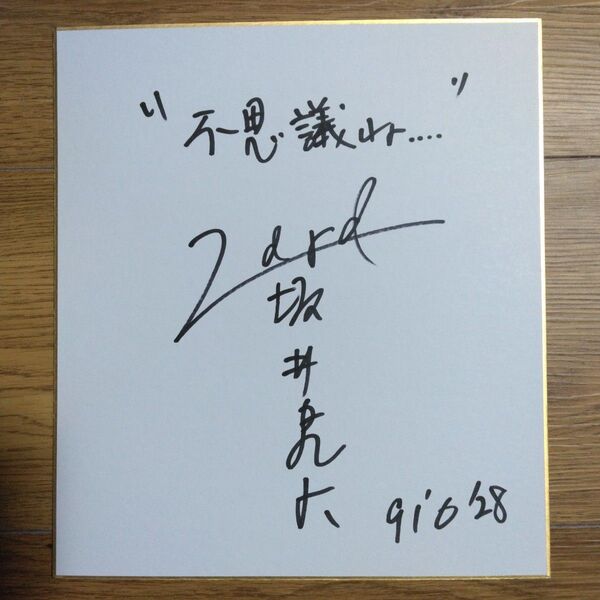 "不思議ね...."
Zard
坂井泉水
91'6'28